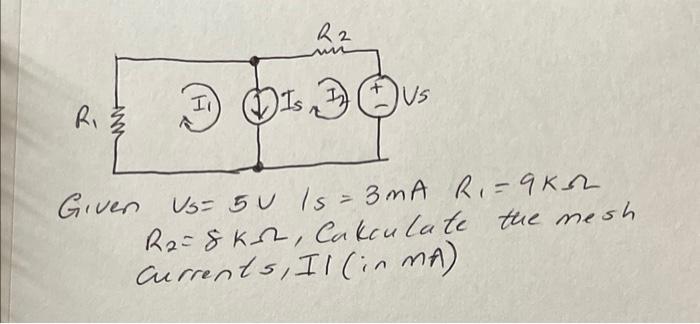 R2
R1 I1 Is I2 + - Vs
Given Vs= 5V Is = 3mA R1 = 9KΩ
R2= 8 KΩ, Calculate the mesh
currents, I1 (in mA)